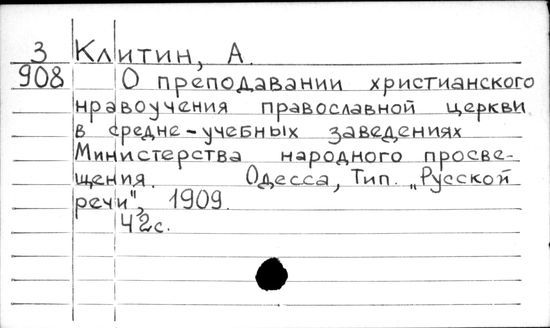 3 Клитин, А.
908 О преподавании христианского
нравоучения православной церкви
в средне-учебных заведениях
Министерства народного просве-
щения. Одесса, Тип. „Русской
речи", 1909.
42с.